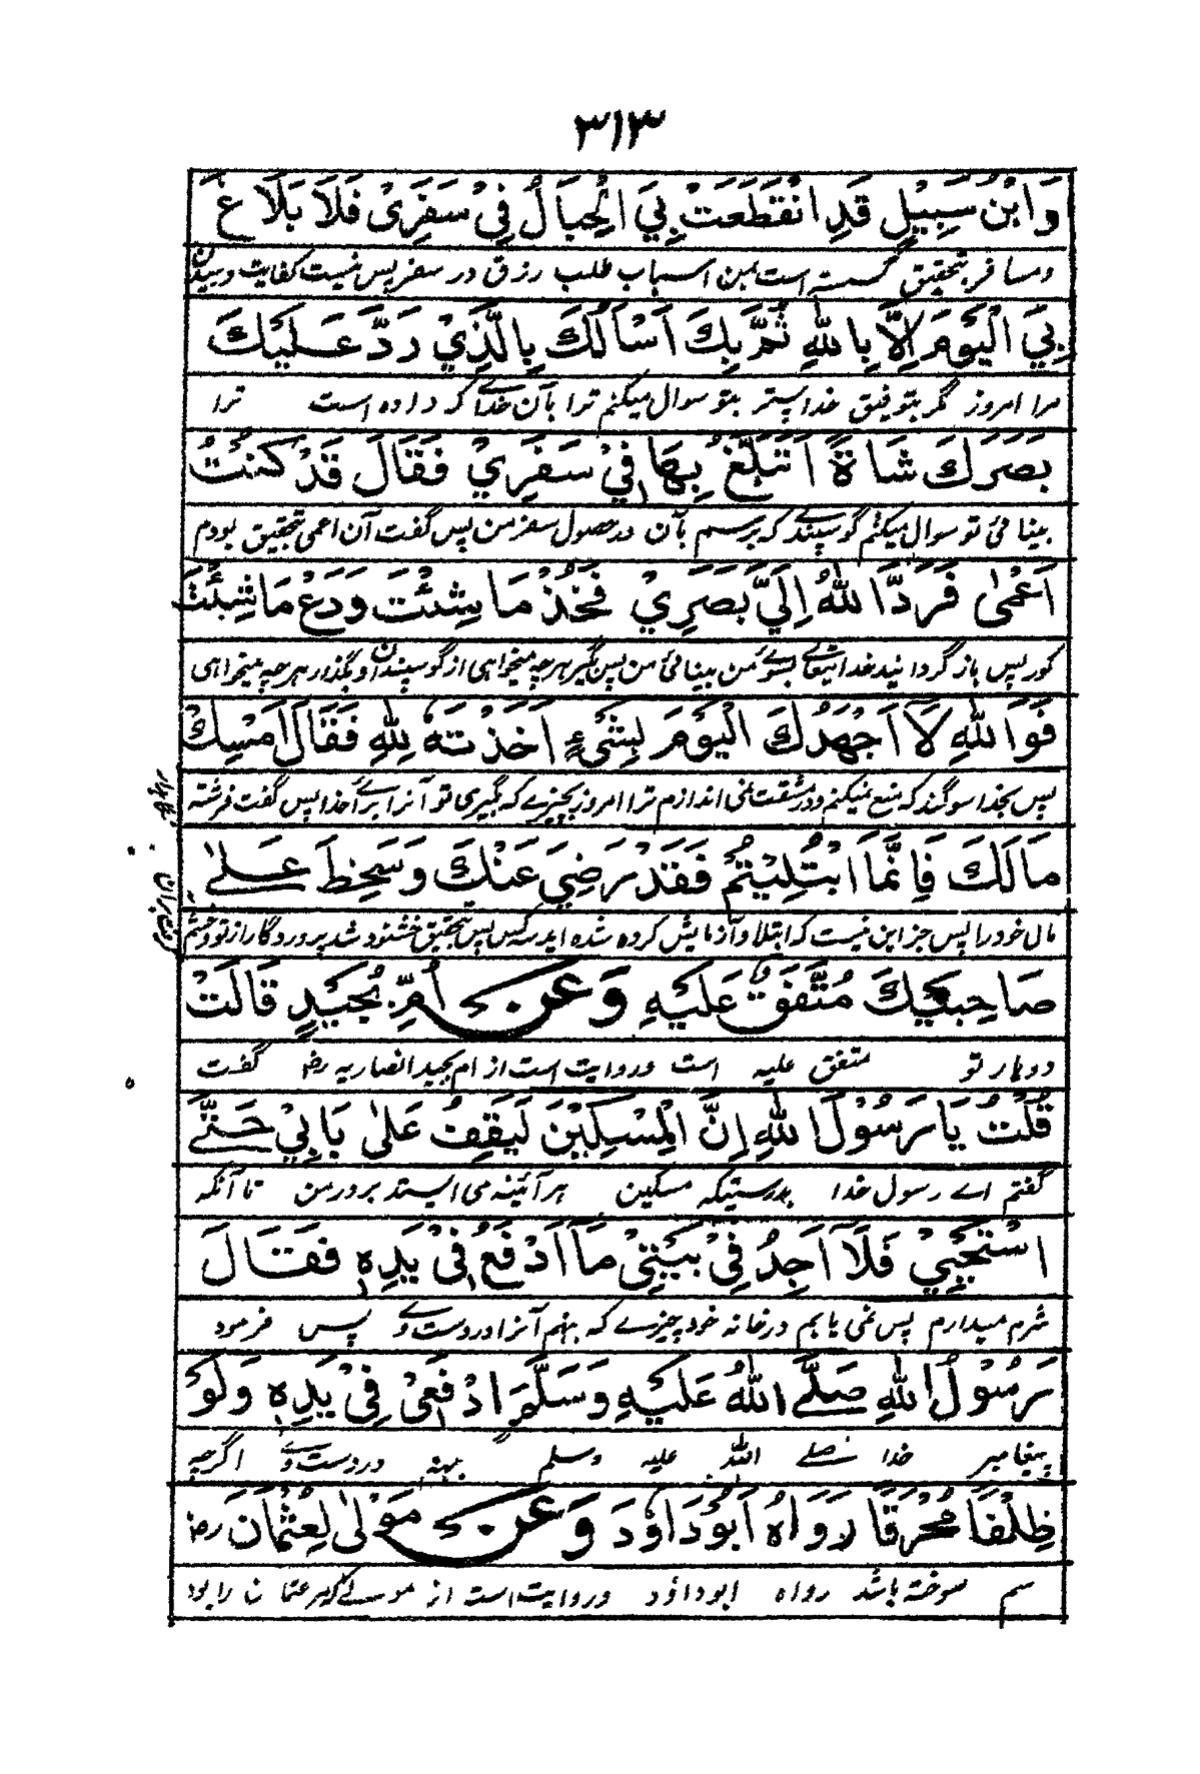 ۳۱۳
وَابْنُ سَبِيْلٍ قَدِ انْقَطَعَتْ بِيَ الْحِبَالُ فِيْ سَفَرِىْ فَلَا بَلَاغَ
ومسافر بتحقیق گسسته است بمن اسباب طلب رزق در سفر پس نیست کفایت و رسیدن
بِيَ الْيَوْمَ اِلَّا بِاللّٰهِ ثُمَّ بِكَ اَسْاَلُكَ بِالَّذِيْ رَدَّ عَلَيْكَ
مرا امروز مگر بتوفیق خدا پستر بتو سوال میکنم ترا بآن خدائے که داده است ترا
بَصَرَكَ شَاةً اَتَبَلَّغُ بِهَا فِيْ سَفَرِيْ فَقَالَ قَدْ كُنْتُ
بینائی تو سوال میکنم گوسپندے که برسم بآن در حصول سفر من پس گفت آن اعمی بتحقیق بودم
اَعْمٰى فَرَدَّ اللّٰهُ اِلَيَّ بَصَرِيْ فَخُذْ مَا شِئْتَ وَدَعْ مَا شِئْتَ
کور پس باز گردانید خدا تعالے بسوئے من بینائی من پس بگیر هرچه میخواهی از گوسپندان و بگذار هرچه میخواهی
فَوَاللّٰهِ لَا اَجْهَدُكَ الْيَوْمَ بِشَيْءٍ اَخَذْتَهٗ لِلّٰهِ فَقَالَ اَمْسِكْ
پس بخدا سوگند که منع نمیکنم و در مشقت نمی اندازم ترا امروز بچیزے که بگیری تو آنرا برائے خدا پس گفت فرشته
مَالَكَ فَاِنَّمَا ابْتُلِيْتُمْ فَقَدْ رَضِيَ عَنْكَ وَسَخِطَ عَلٰى
مال خود را پس جز این نیست که ابتلا و آزمایش کرده شده اید سه کس پس بتحقیق خشنود شد پروردگار از تو و خشم
صَاحِبَيْكَ مُتَّفَقٌ عَلَيْهِ وَعَنْ اُمِّ بُجَيْدٍ قَالَتْ
دو یار تو متفق علیه است و روایت است از ام بجید انصاریه رض گفت
قُلْتُ يَا رَسُوْلَ اللّٰهِ اِنَّ الْمِسْكِيْنَ لَيَقِفُ عَلٰى بَابِيْ حَتّٰى
گفتم اے رسول خدا بدرستیکه مسکین هر آئینه می ایستد بر در من تا آنکه
اَسْتَحْيِيْ فَلَا اَجِدُ فِيْ بَيْتِيْ مَا اَدْفَعُ فِيْ يَدِهٖ فَقَالَ
شرم میدارم پس نمی یابم در خانه خود چیزے که بنهم آنرا در دست وے پس فرمود
رَسُوْلُ اللّٰهِ صَلَّى اللّٰهُ عَلَيْهِ وَسَلَّمَ ادْفَعِىْ فِيْ يَدِهٖ وَلَوْ
پیغامبر خدا صلے اللہ علیه وسلم بنه در دست وے اگرچه
ظِلْفًا مُحْرَقًا رَوَاهُ اَبُوْدَاوٗدَ وَعَنْ مَوْلٰى لِعُثْمَانَ رض
سم سوخته باشد رواه ابوداؤد و روایت است از مولے که مر عثمان را بود